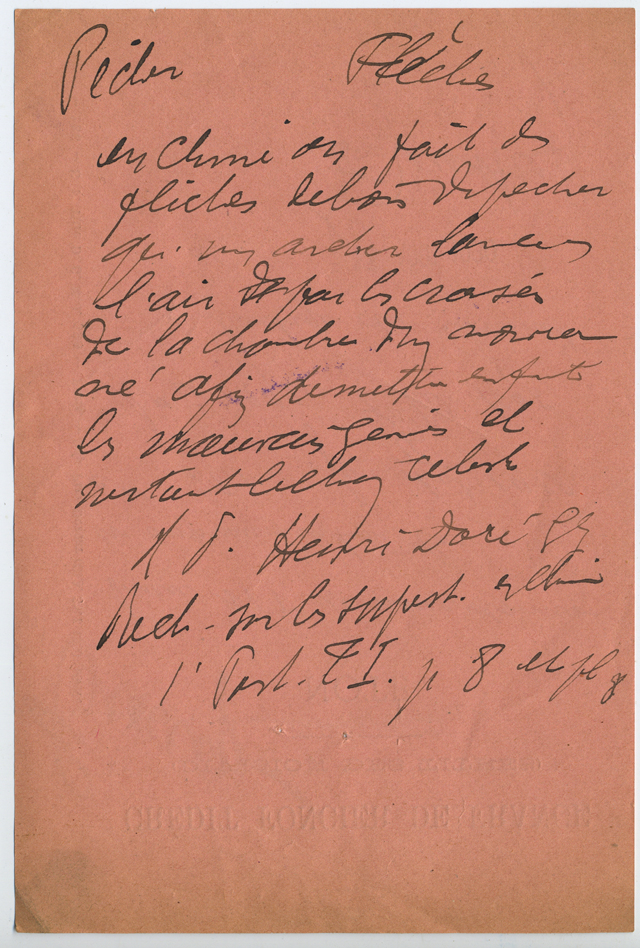 Pêcher Flèches
en Chine on fait des
flèches de bois de pêcher
qu'un archer lance en
l'air par les croisées
de la chambre d'un nouveau
né afin de mettre en fuite
les mauvais génies et
le chien céleste
Henri Doré
Rech. sur les superst. en Chine
1e Part. T I. p 8 et pl 8